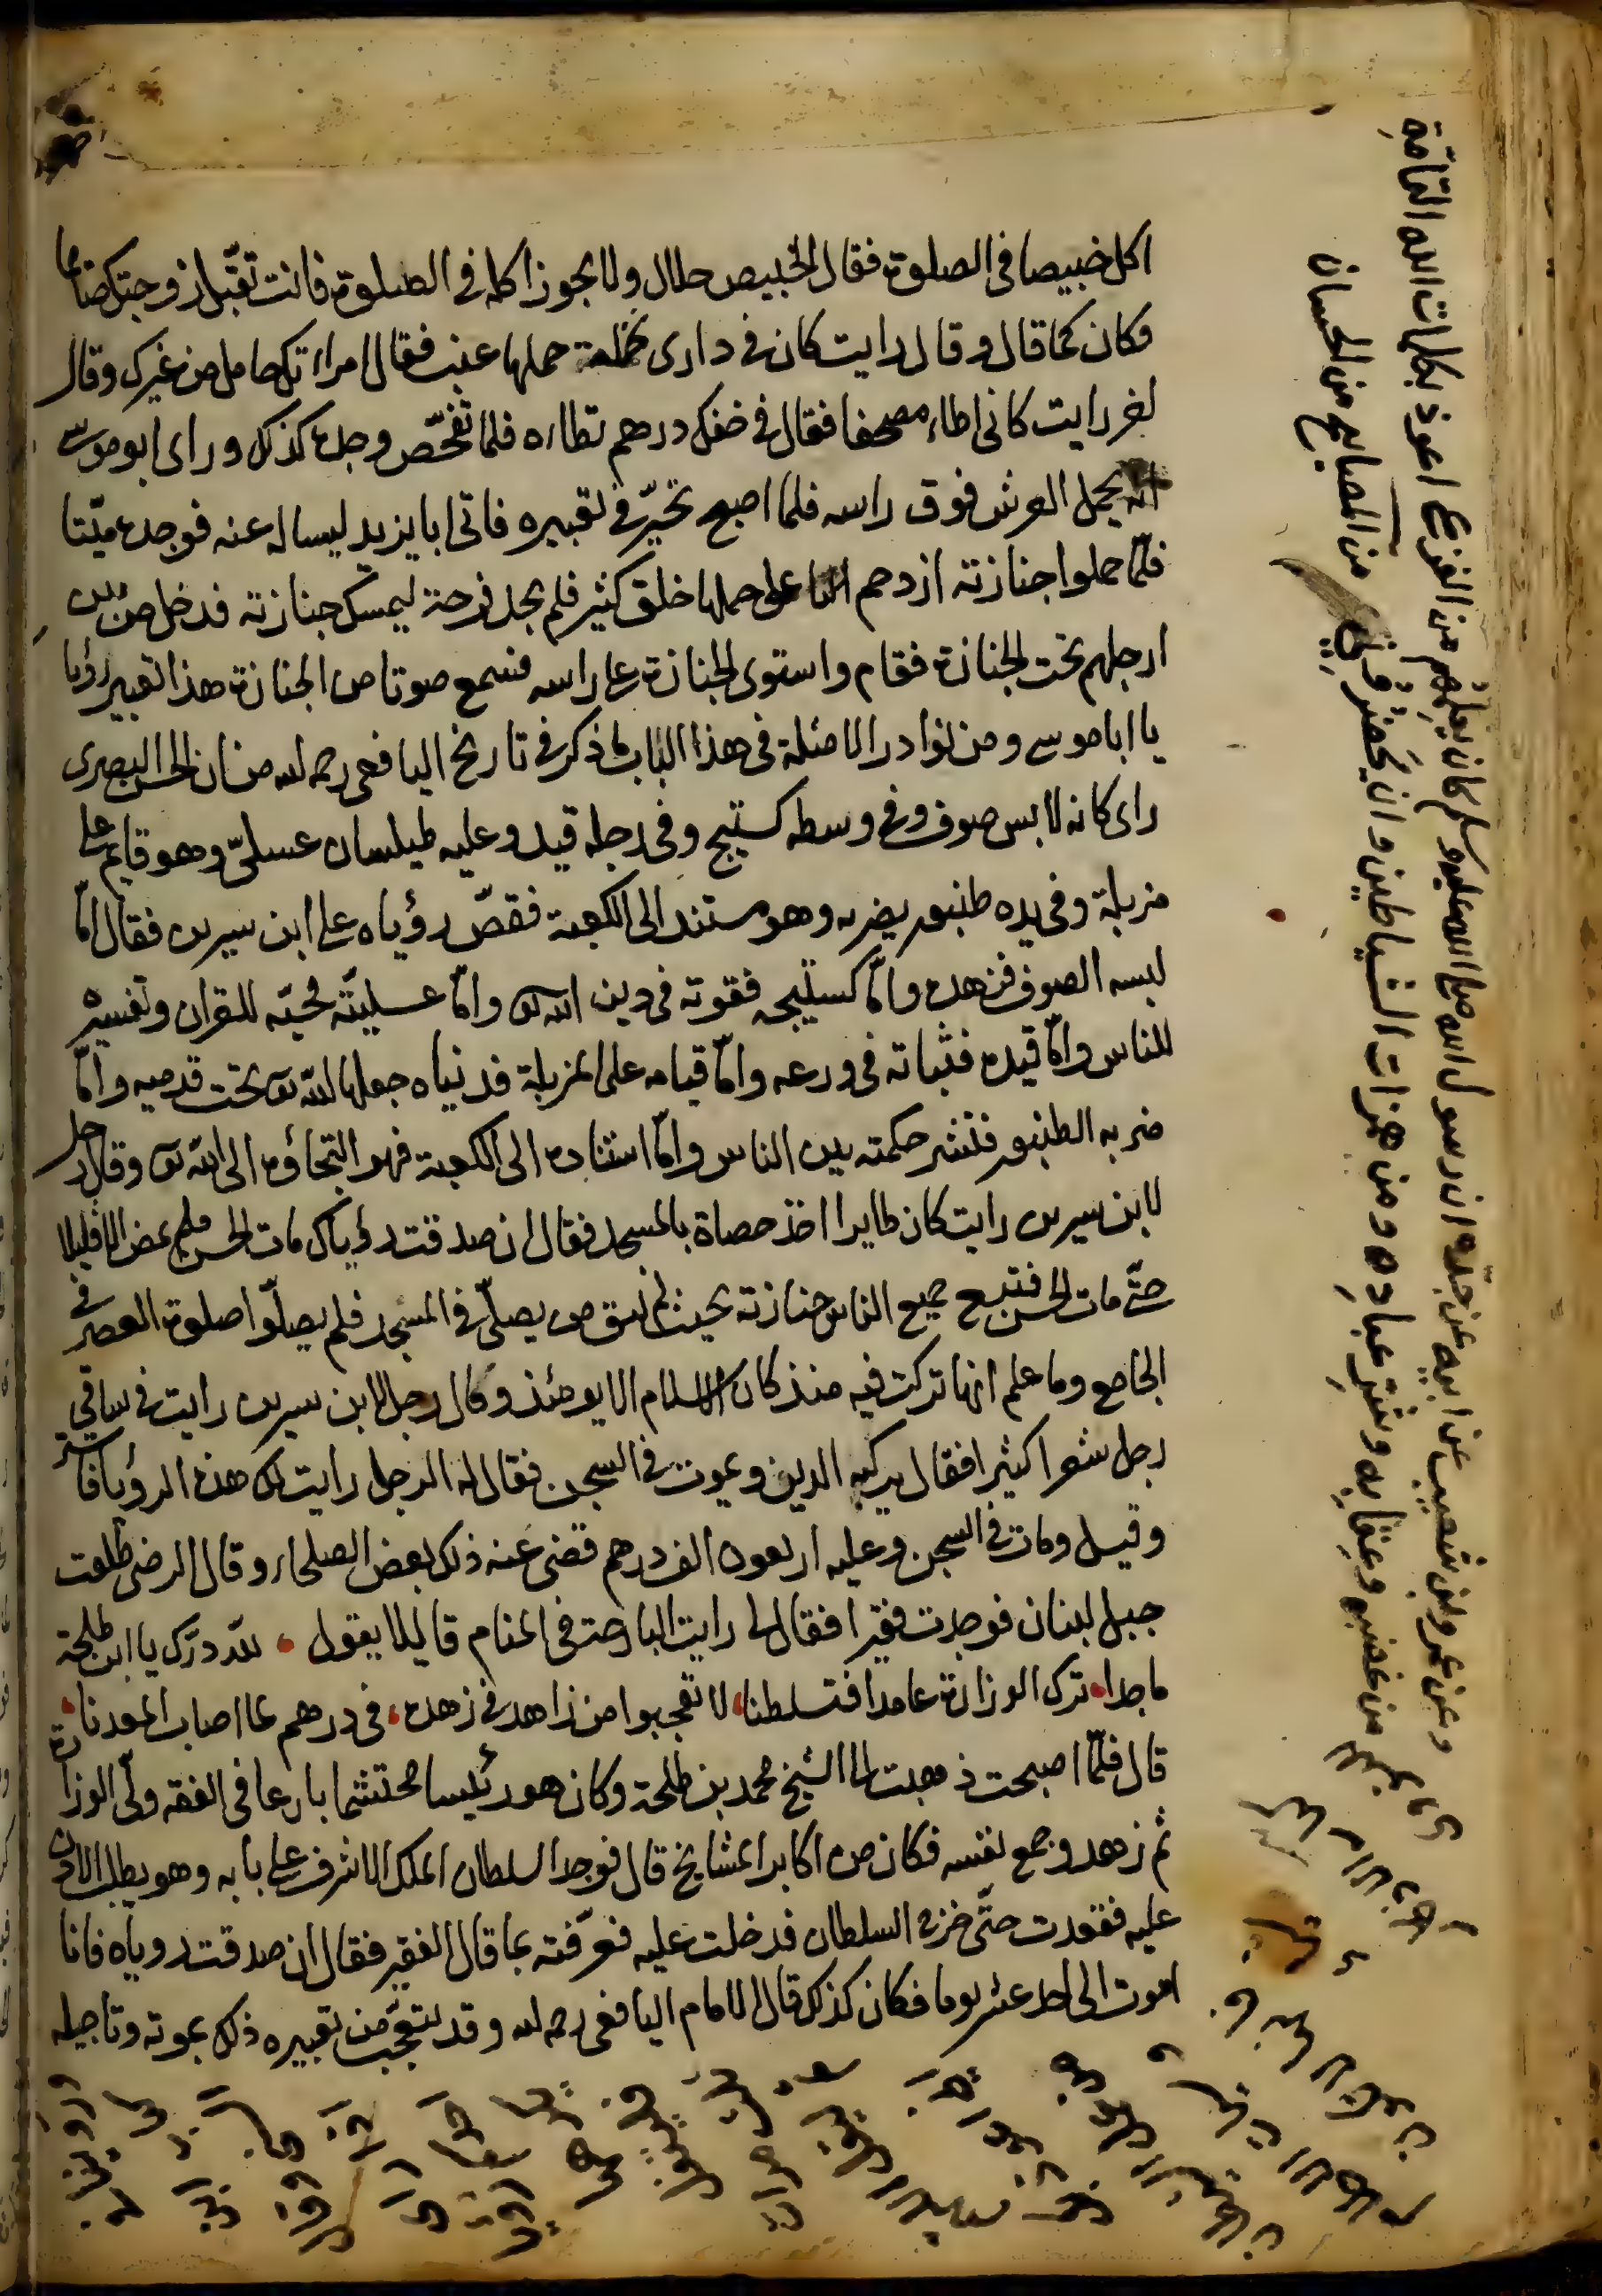 اكل خبيصا فى الصلوة فقال الخبيص حلال ولا يجوز اكله فى الصلوة فانت تقبّل زوجتك صائما
فكان كما قال وقال رايت كان فى دارى نخلة حملها عنب فقال امراتك حامل من غيرك وقال
رايت كانى اطاء مصحفا فقال فى خفك درهم تطاه فلما تفحّص وجده كذلك وراى ابو موسى
انه يحمل العرش فوق راسه فلما اصبح تحيّر فى تعبيره فاتى ابا يزيد ليساله عنه فوجده ميّتا
فلمّا حملوا جنازته ازدحم على حملها خلق كثير فلم يجد فرجة ليمسك جنازته فدخل من بين
ارجلهم تحت الجنازة فقام واستوى الجنازة على راسه فسمع صوتا من الجنازة هذا تعبير رؤيا
يا ابا موسى ومن نوادر الامثلة فى هذا الباب ما ذكر فى تاريخ اليافعى رحمه الله من ان الحسن البصرى
راى كانه لابس صوف وفى وسطه كستيج وفى رجله قيد وعليه طيلسان عسلىّ وهو قايم على
مزبلة وفى يده طنبور يضربه وهو مستند الى الكعبة فقصّ رؤياه على ابن سيرين فقال امّا
لبسه الصوف فزهده وامّا كستيجه فقوته فى دين الله تع وامّا عسليّته فحبّه للقران وتفسيره
للناس وامّا قيده فثباته فى ورعه وامّا قيامه على المزبلة فدنياه جعلها الله تع تحت قدميه وامّا
ضربه الطنبور فنشر حكمته بين الناس وامّا استناده الى الكعبة فهو التجاؤه الى الله تع وقال رجل
لابن سيرين رايت كان طايرا اخذ حصاة بالمسجد فقال ان صدقت رؤياك مات الحسن فلم يمض الا قليلا
حتّى مات الحسن فتبع جميع الناس جنازته بحيث لم يبق من يصلّى فى المسجد فلم يصلّوا صلوة العصر فى
الجامع وما علم انها تركت فيه منذ كان الاسلام الا يومئذ وقال رجل لابن سيرين رايت فى ساقى
رجل شعرا كثيرا فقال يركبه الدين ويموت فى السجن فقال له الرجل رايت لك هذه الرؤيا فاستر
وقيل ومات فى السجن وعليه اربعون الف درهم قضى عنه ذلك بعض الصلحاء وقال الرضى طلعت
جبل لبنان فوجدت فقيرا فقال لى رايت البارحة فى المنام قايلا يقول ، لله درّك يا ابن طلحة
ماجدا، ترك الوزارة عامدا فتسلطنا، لا تعجبوا من زاهد فى زهده، فى درهم لما اصاب المعدنا،
قال فلمّا اصبحت ذهبت الى الشيخ محمد بن طلحة وكان هو رئيسا محتشما بارعا فى الفقه ولّى الوزارة
ثم زهد وجمع نفسه فكان من اكابر المشايخ قال فوجد السلطان الملك الاشرف على بابه وهو يطلب الاذن
عليه فقعدت حتّى خرج السلطان فدخلت عليه فعرّفته بما قال الفقير فقال ان صدقت روياه فانا
اموت الى احد عشر يوما فكان كذلك قال الامام اليافعى رحمه الله وقد يتعجّب من تعبيره ذلك بموته وتاجيله
وعن عمرو بن شعيب عن ابيه عن جدّه ان رسول الله صلى الله عليه وسلم كان يعلّمهم من الفزع اعوذ بكلمات الله التامّة
من غضبه وعقابه وشرّ عباده ومن همزات الشياطين وان يحضرون من المصابيح من الحسان